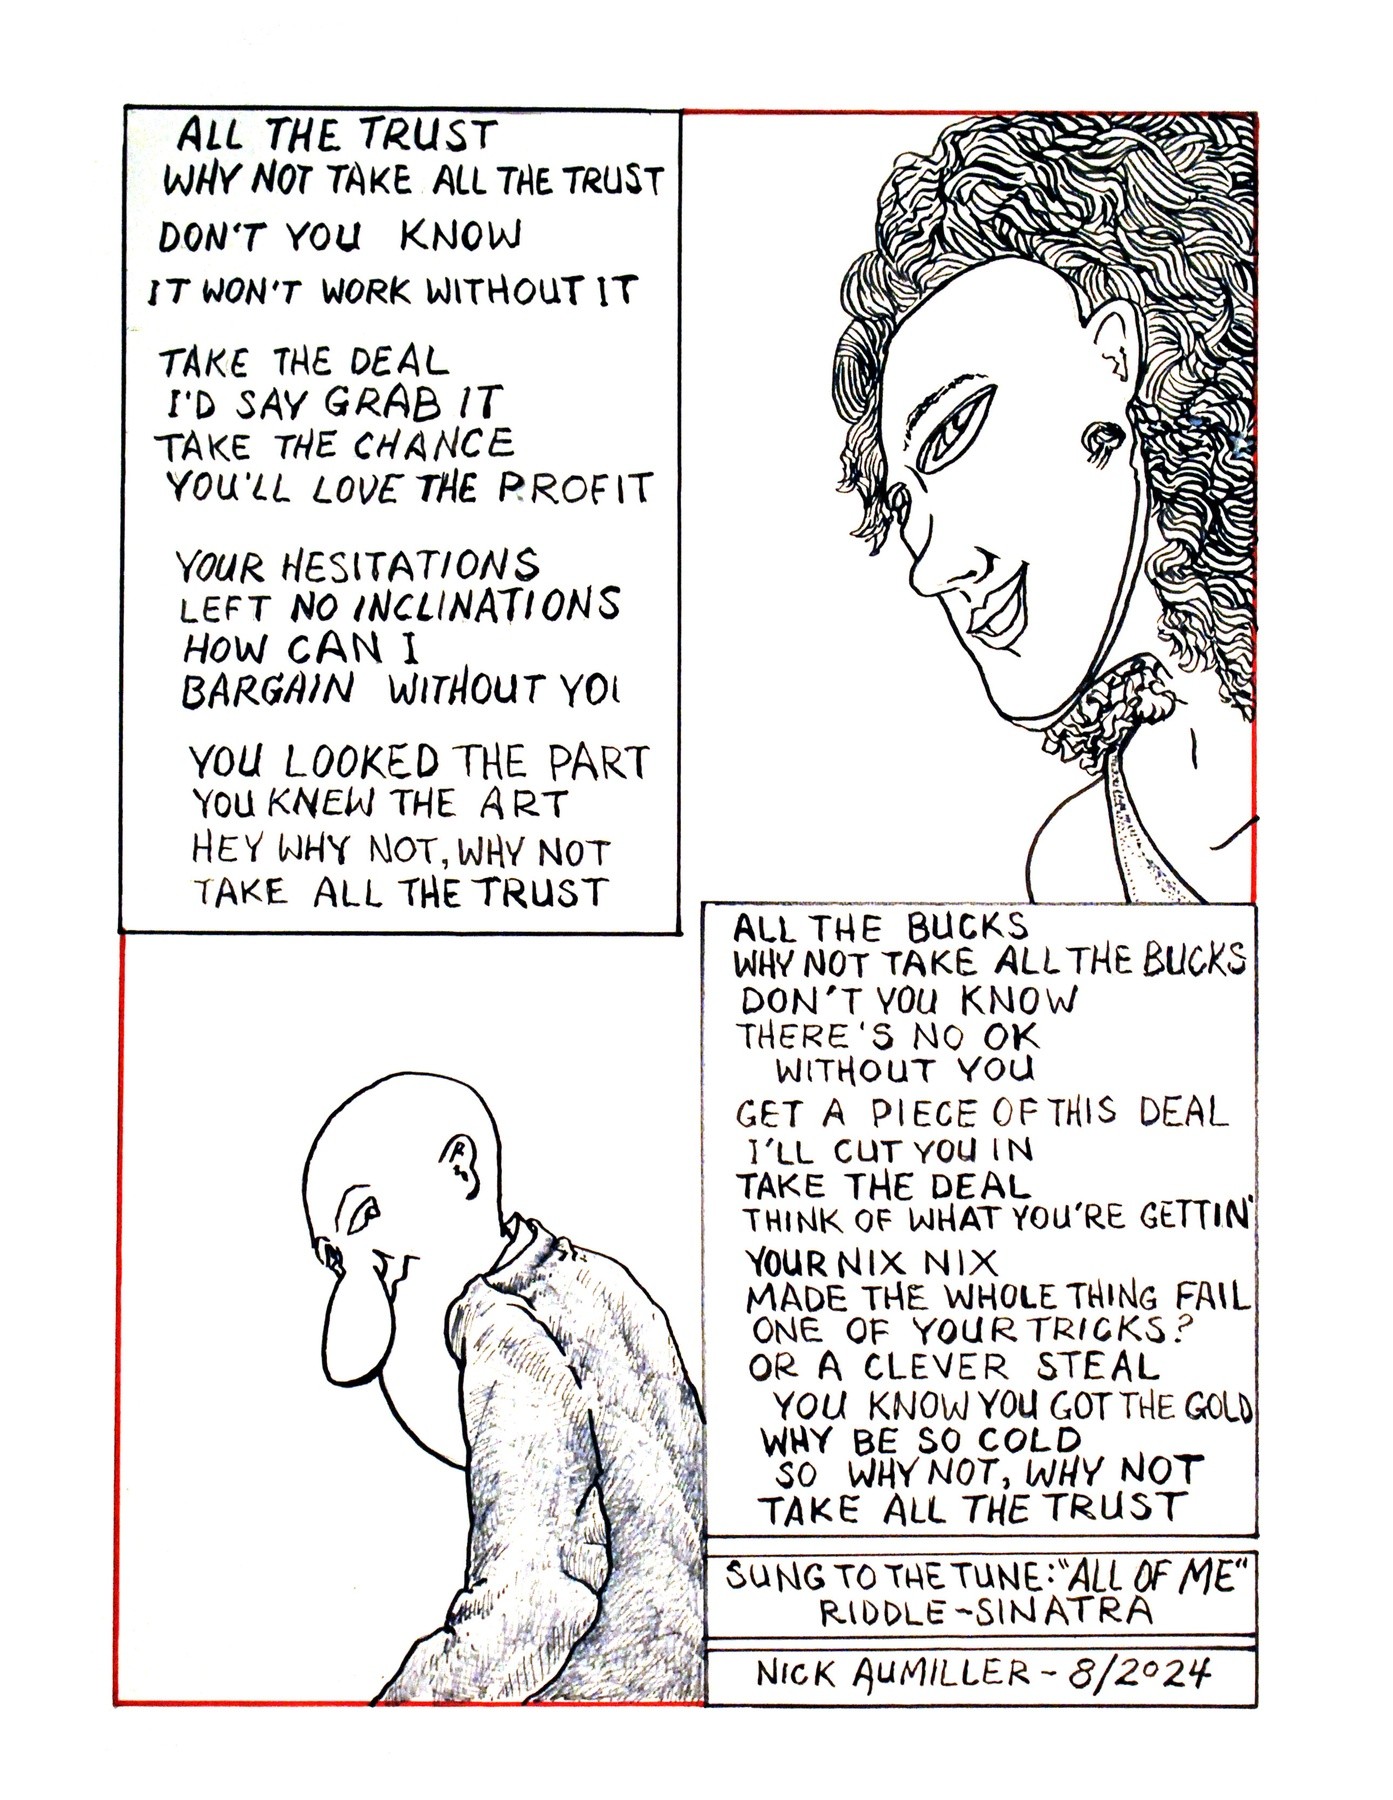 ALL THE TRUST
WHY NOT TAKE ALL THE TRUST
DON'T YOU KNOW
IT WON'T WORK WITHOUT IT
TAKE THE DEAL
I'D SAY GRAB IT
TAKE THE CHANCE
YOU'LL LOVE THE PROFIT
YOUR HESITATIONS
LEFT NO INCLINATIONS
HOW CAN I
BARGAIN WITHOUT YOU
YOU LOOKED THE PART
YOU KNEW THE ART
HEY WHY NOT, WHY NOT
TAKE ALL THE TRUST
ALL THE BUCKS
WHY NOT TAKE ALL THE BUCKS
DON'T YOU KNOW
THERE'S NO OK
WITHOUT YOU
GET A PIECE OF THIS DEAL
I'LL CUT YOU IN
TAKE THE DEAL
THINK OF WHAT YOU'RE GETTIN'
YOUR NIX NIX
MADE THE WHOLE THING FAIL
ONE OF YOUR TRICKS?
OR A CLEVER STEAL
YOU KNOW YOU GOT THE GOLD
WHY BE SO COLD
SO WHY NOT, WHY NOT
TAKE ALL THE TRUST
SUNG TO THE TUNE: "ALL OF ME"
RIDDLE~SINATRA
NICK AUMILLER - 8/2024